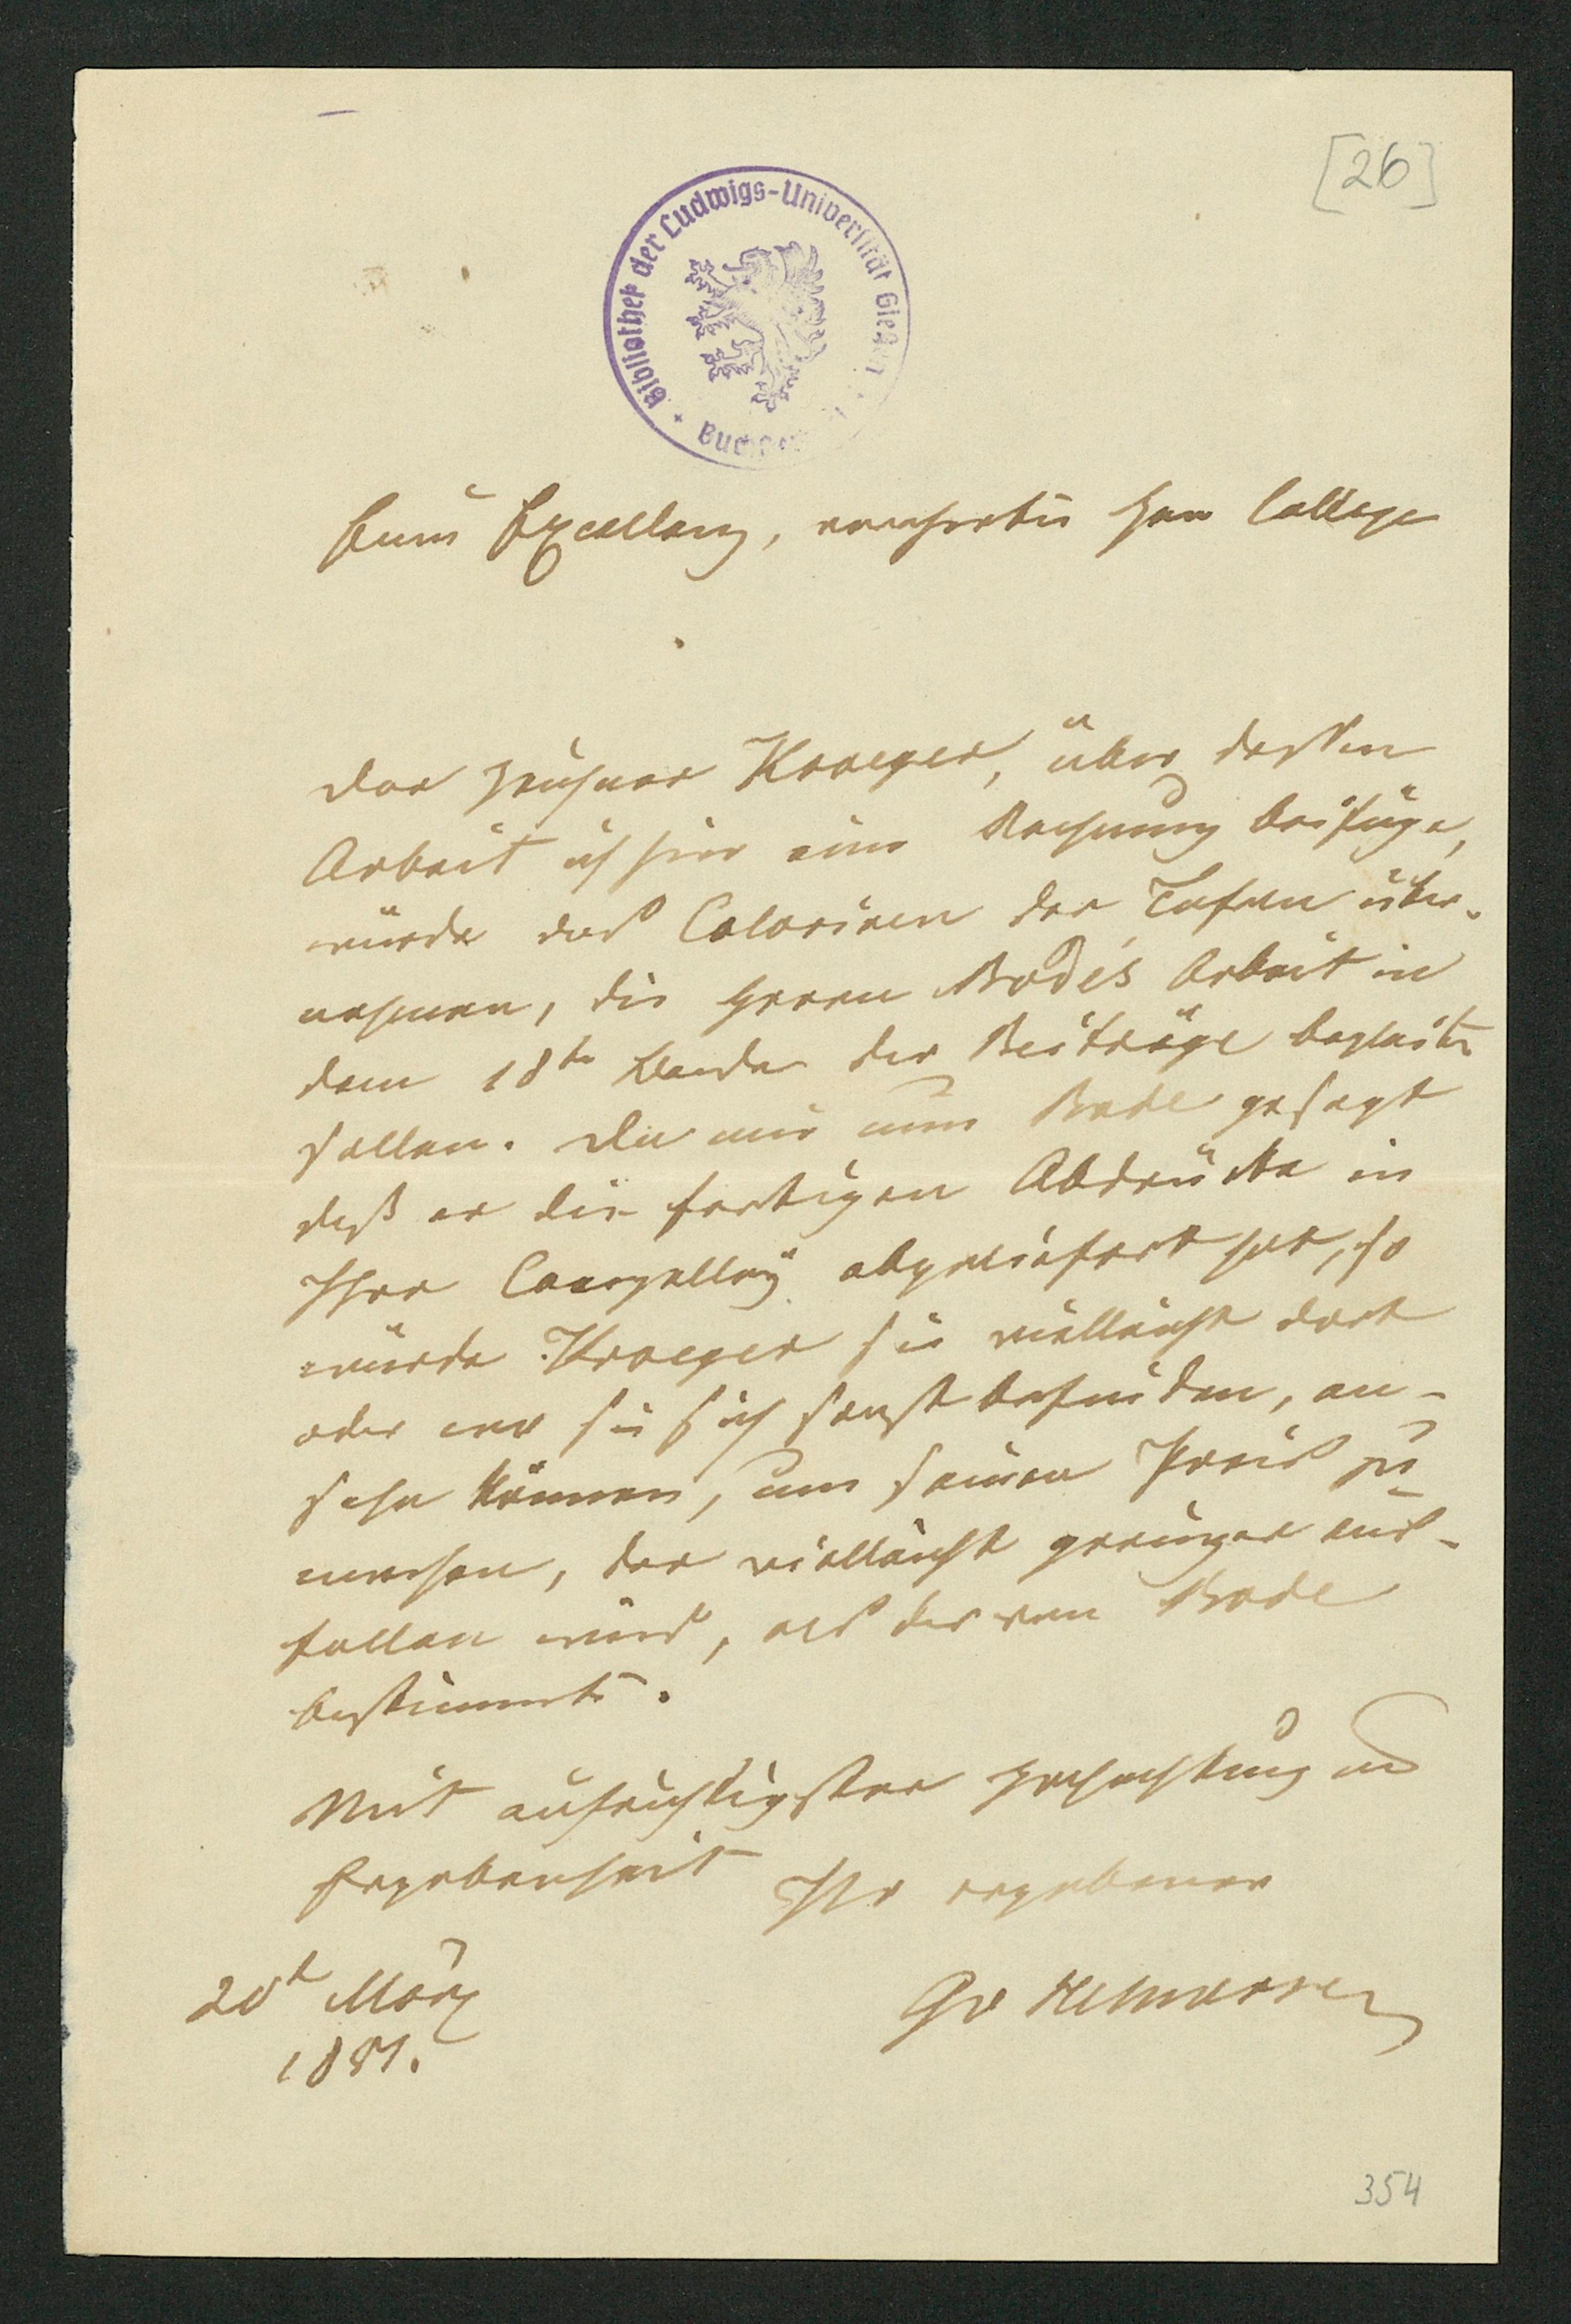 [26]
Bibliothek der Ludwigs-Universität Gießen
Eure Excellenz, verehrter Herr College
Der Zeichner Kroeger, über dessen
Arbeit ich hier eine Rechnung beifüge,
würde das Coloriren der Tafeln über-
nehmen, die Herrn Bode's Arbeit in
dem 18ten Bande der Beiträge begleiten
sollen. Da mir nun Bode gesagt
daß er die fertigen Abdrücke in
Ihre abgeliefert hat, so
würde Kroeger sie vielleicht dort
oder wo sie sich sonst befinden, an-
sehn können, um seinen Preis zu
machen, der vielleicht geringer aus-
fallen wird, als der von Bode
bestimmte.
Mit aufrichtigster Hochachtung und
Ergebenheit
Ihr ergebener
20t März
1851.
Gv Helmersen
354